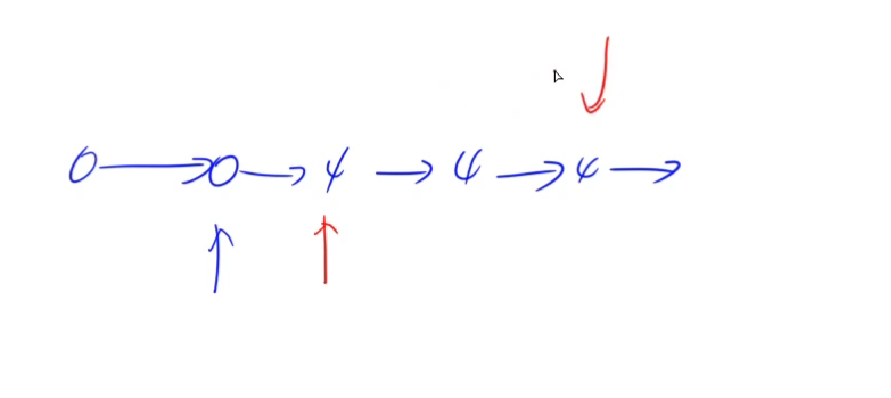 0 → 0 → 4 → 4 → 4 →